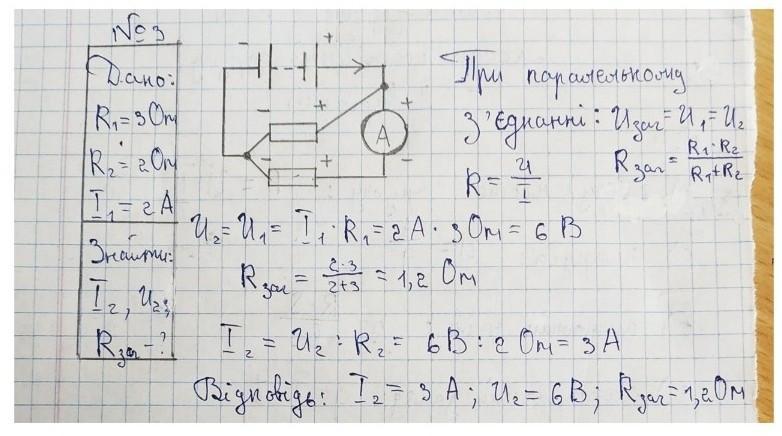 №3
Дано:
R₁ = 3 Ом
R₂ = 2 Ом
I₁ = 2 А
Знайти:
I₂, U₂;
Rзаг - ?
- +
- +
- +
А
+
-
При паралельному
з'єднанні: Uзаг = U₁ = U₂
R = U/I
Rзаг = R₁·R₂/R₁+R₂
U₂ = U₁ = I₁ · R₁ = 2 А · 3 Ом = 6 В
Rзаг = 2·3/2+3 = 1,2 Ом
I₂ = U₂ : R₂ = 6В : 2 Ом = 3 А
Відповідь: I₂ = 3 А; U₂ = 6В; Rзаг = 1,2 Ом